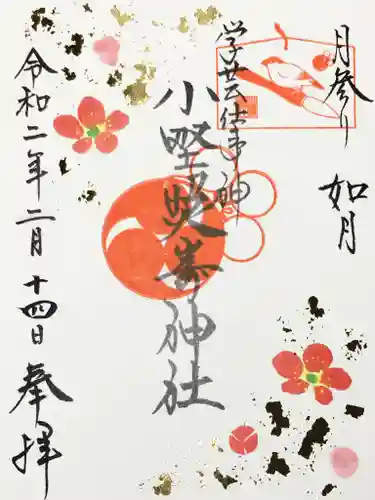 月参り
如月
学芸仕事神
小野照崎神社
令和二年二月十四日
奉拝